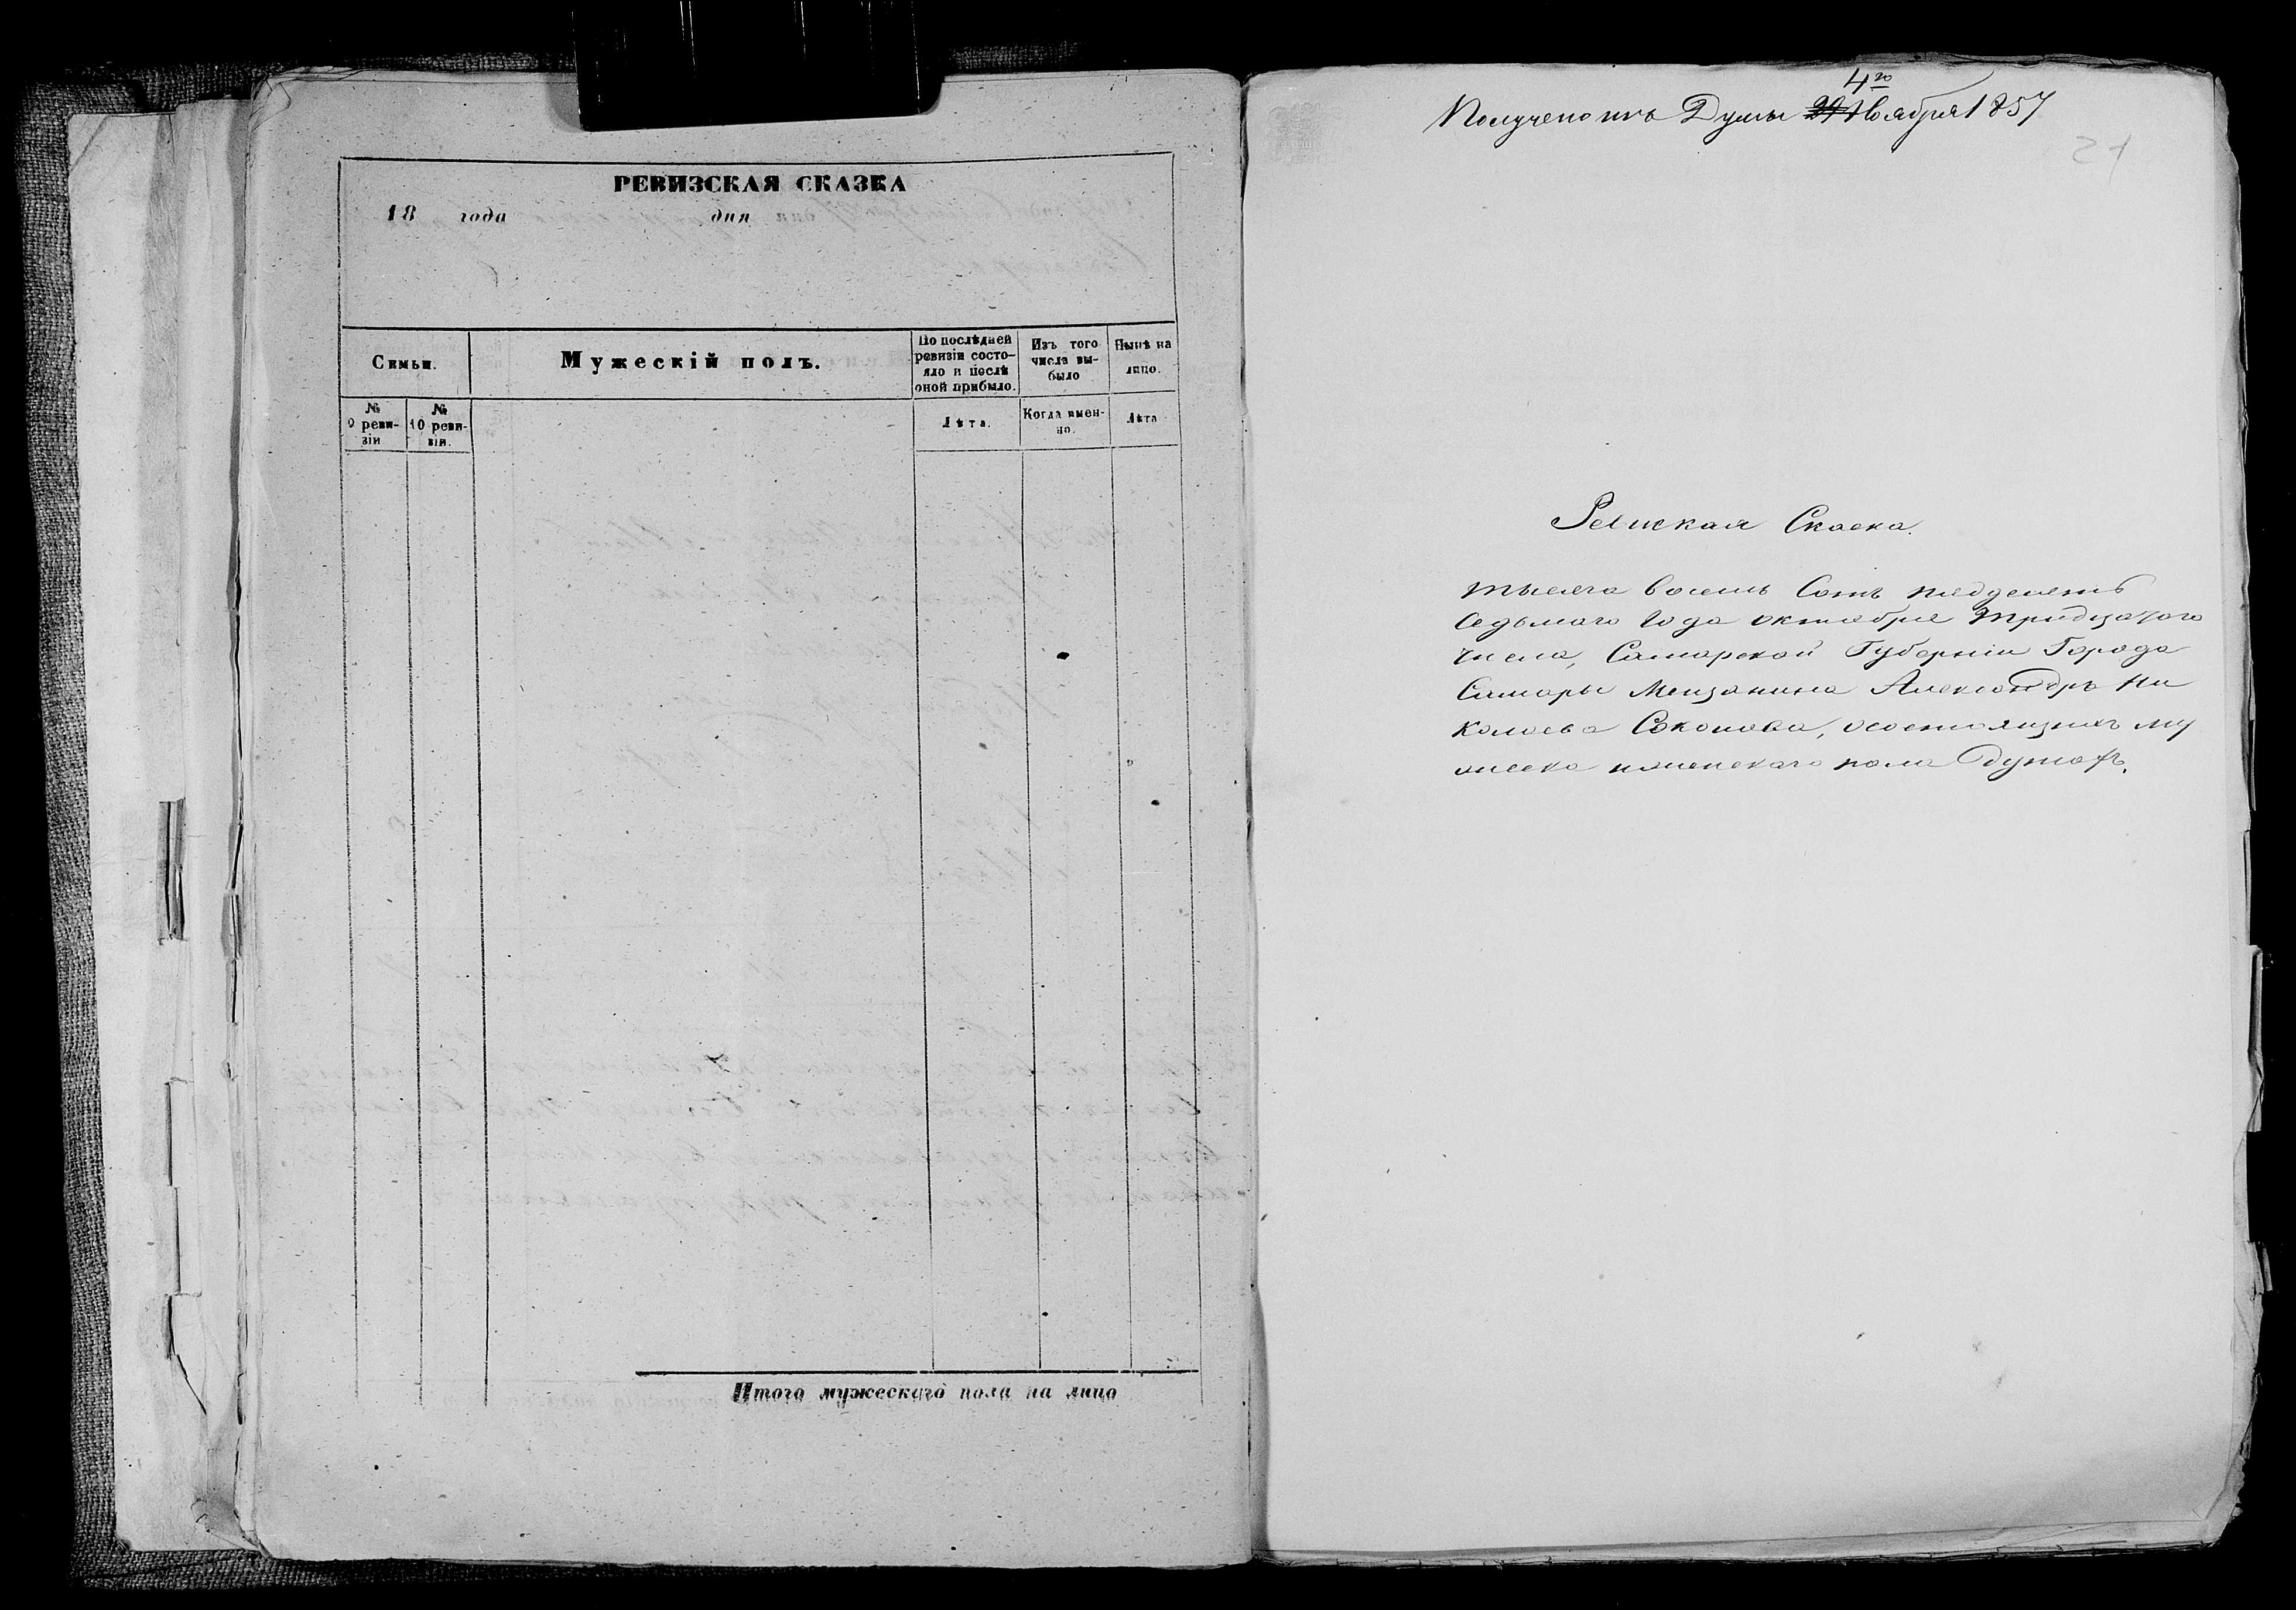 РЕВИЗСКАЯ СКАЗКА
18 года дня
Симьи.
Мужескій полъ.
По послѣдней ревизіи состо-
яло и послѣ
оной прибыло.
Изъ того
числа вы-
было
Нынѣ на
лицо.
№
9 реви-
зіи
№
10 реви-
зіи.
Лѣта.
Когда имен-
но.
Лѣта
Итого мужескаго пола на лицо
4го
Получено изъ Думы Ноября 1857
21
Ревиская Скаска.
тысяча восемь Сотъ пяддесетъ
Седьмаго Года октября тридцатого
числа, Самарской Губерніи Города
Самары Мещанина Александръ Ни
колаева Соколова, осостоящихъ му
жеска иженскаго пола Душахъ.